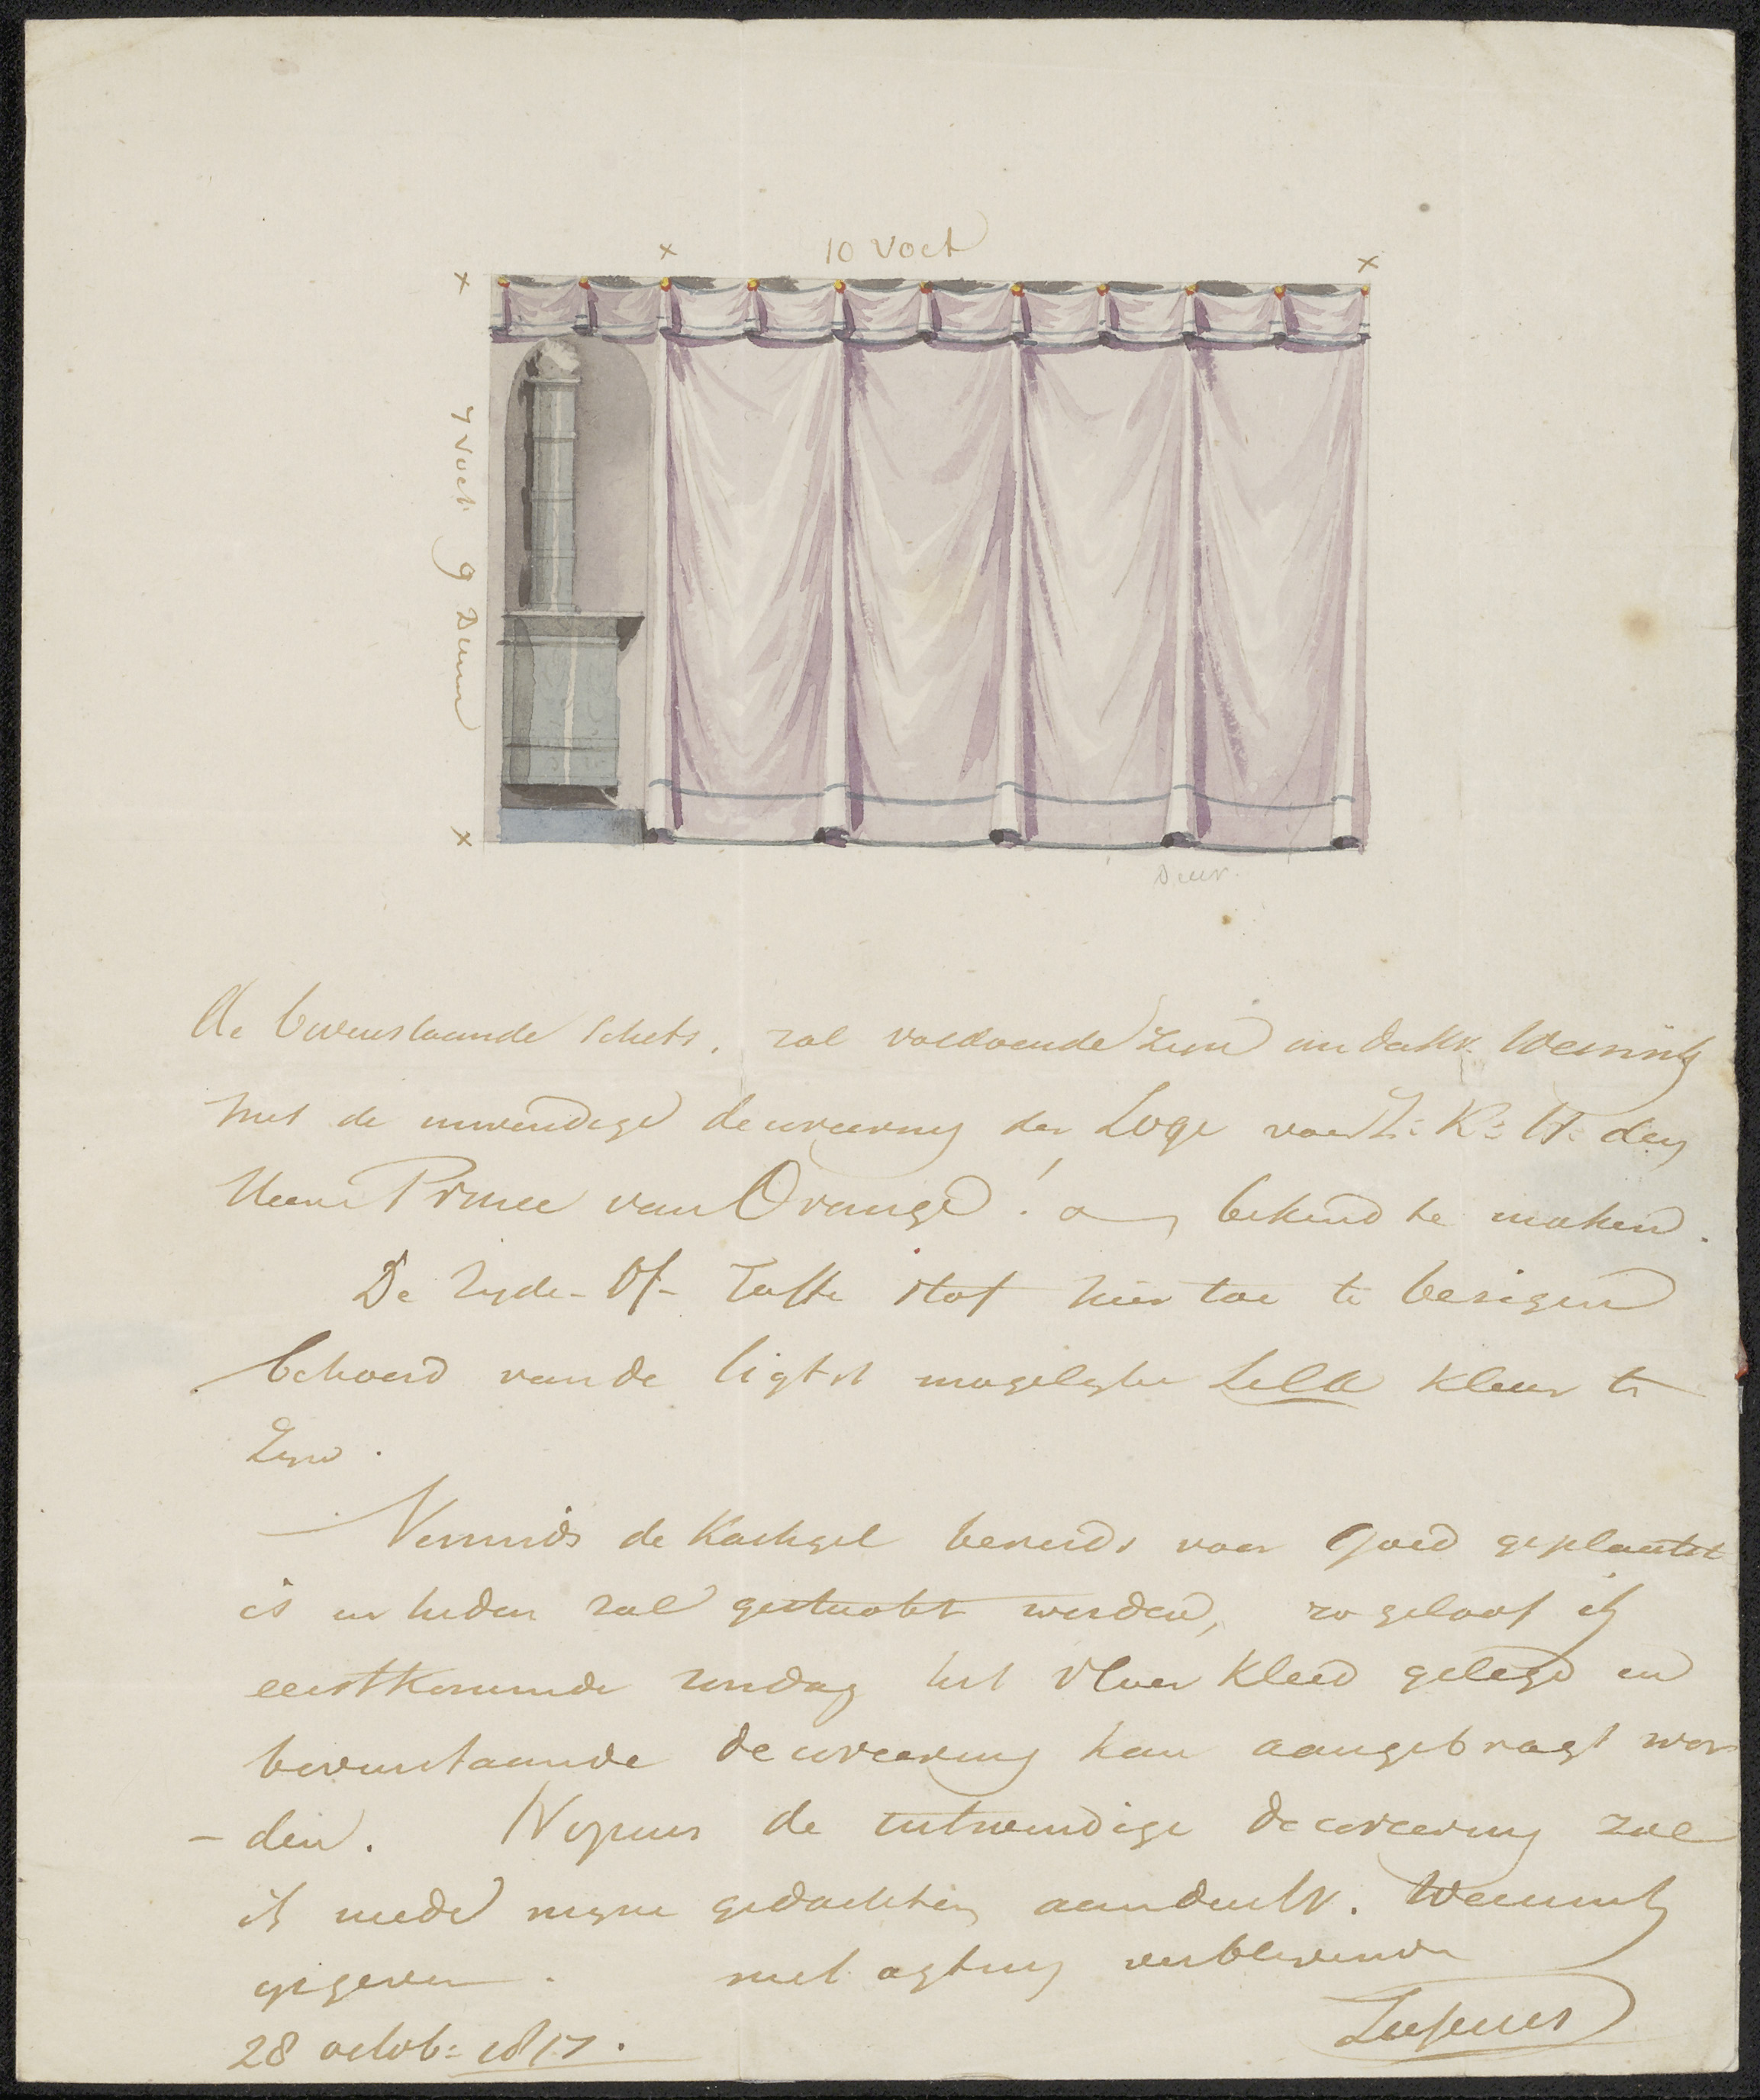 10 Voet
7 Voet 9 Duim
Deur.
De bovenstaande schets, zal voldoende zijn om den Hr. Wennink
met de inwendige decoreering der Loge voor Z: K: H: den
Heere Prince van Orange! bekend te maken.
De Zyde- Of- Taffe stof hier toe te besigen
behoord van de ligtst mogelyke Lela kleur te
Zyn.
Vermids de Kachgel bereids voor goed geplaatst
is en heden zal gestuckt werden, zo geloof ik
eerstkomende zondag het Vloer Kleed gelegd en
bovenstaande decoreering kan aangebragt wor
- den. Nopens de uitwendige decoreering zal
ik mede myne gedachten aan den Hr. Wennink
opgeven. met agting verblyvende
28 octob: 1817.